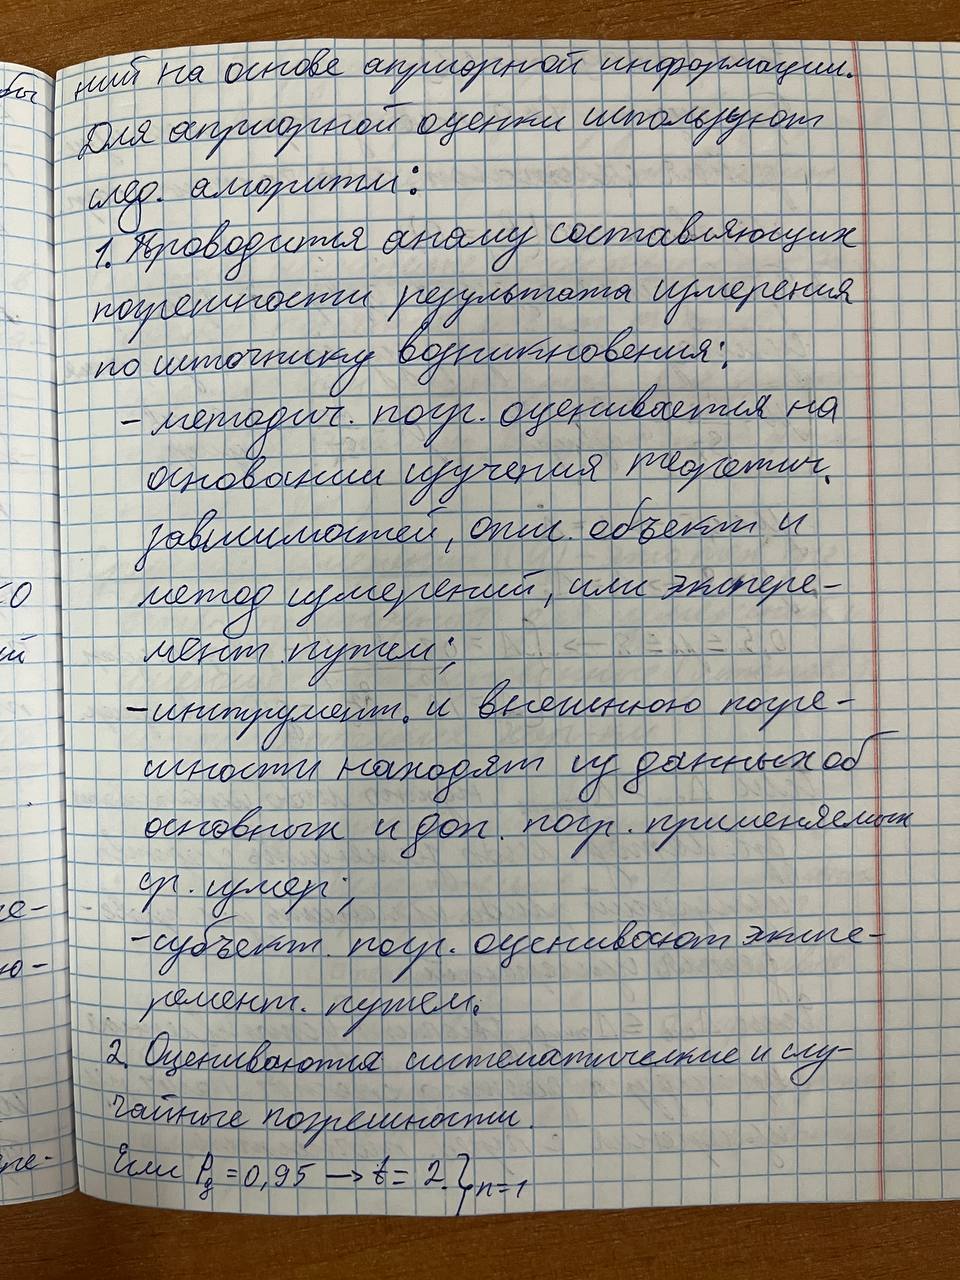 ний на основе априорной информации.
Для априорной оценки используют
след. алгоритм:
1. Проводится анализ составляющих
погрешности результата измерения
по источнику возникновения:
- методич. погр. оценивается на
основании изучения теоретич.
зависимостей, опис. объект и
метод измерений, или экспере-
мент. путем;
- инструмент. и внешнюю погре-
шности находят из данных об
основных и доп. погр. применяемых
ср. измер;
- субъект. погр. оценивают экспе-
ремент. путем.
2. Оцениваются систематические и слу-
чайные погрешности.
Если Pд = 0,95 → t = 2. } n=1